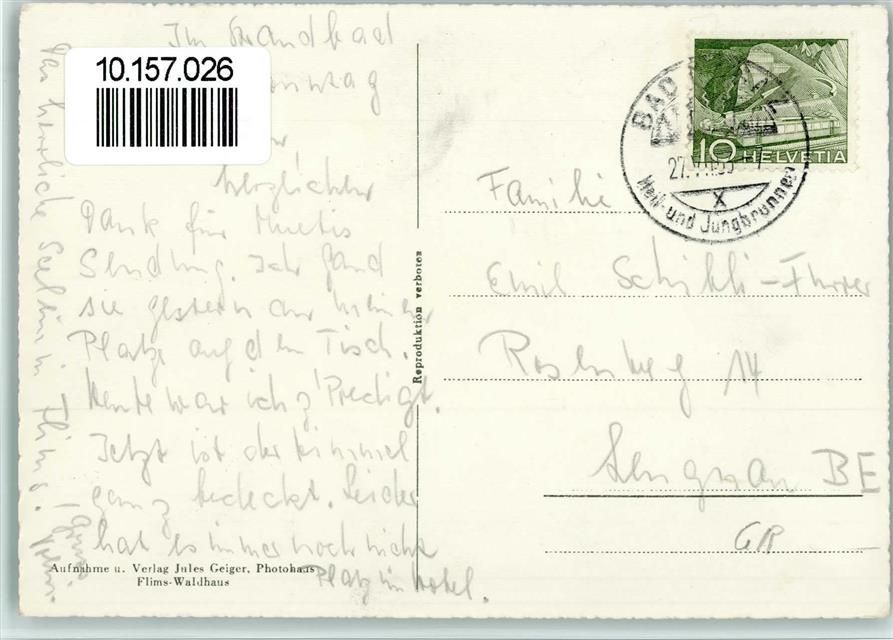 Im Strandbad
10.157.026
Sonntag
herzlichen
Dank für Muetis
Sendung. Ich fand
sie gestern an meinem
Platze auf dem Tisch.
Heute war ich z'Predigt.
Jetzt ist der Himmel
ganz bedeckt. Leider
hat es immer noch nicht
Platz im Hotel.
herrliche
in Flims.
Gruss
Aufnahme u. Verlag Jules Geiger, Photohaus
Flims-Waldhaus
Reproduktion verboten
BAD
27.
X
Heil- und Jungbrunnen
10 HELVETIA
Familie
Emil Schikli-Furrer
Rosenweg 14
BE
GR